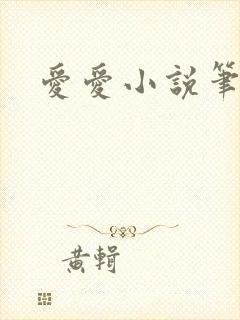 愛愛小説筆
黃輯